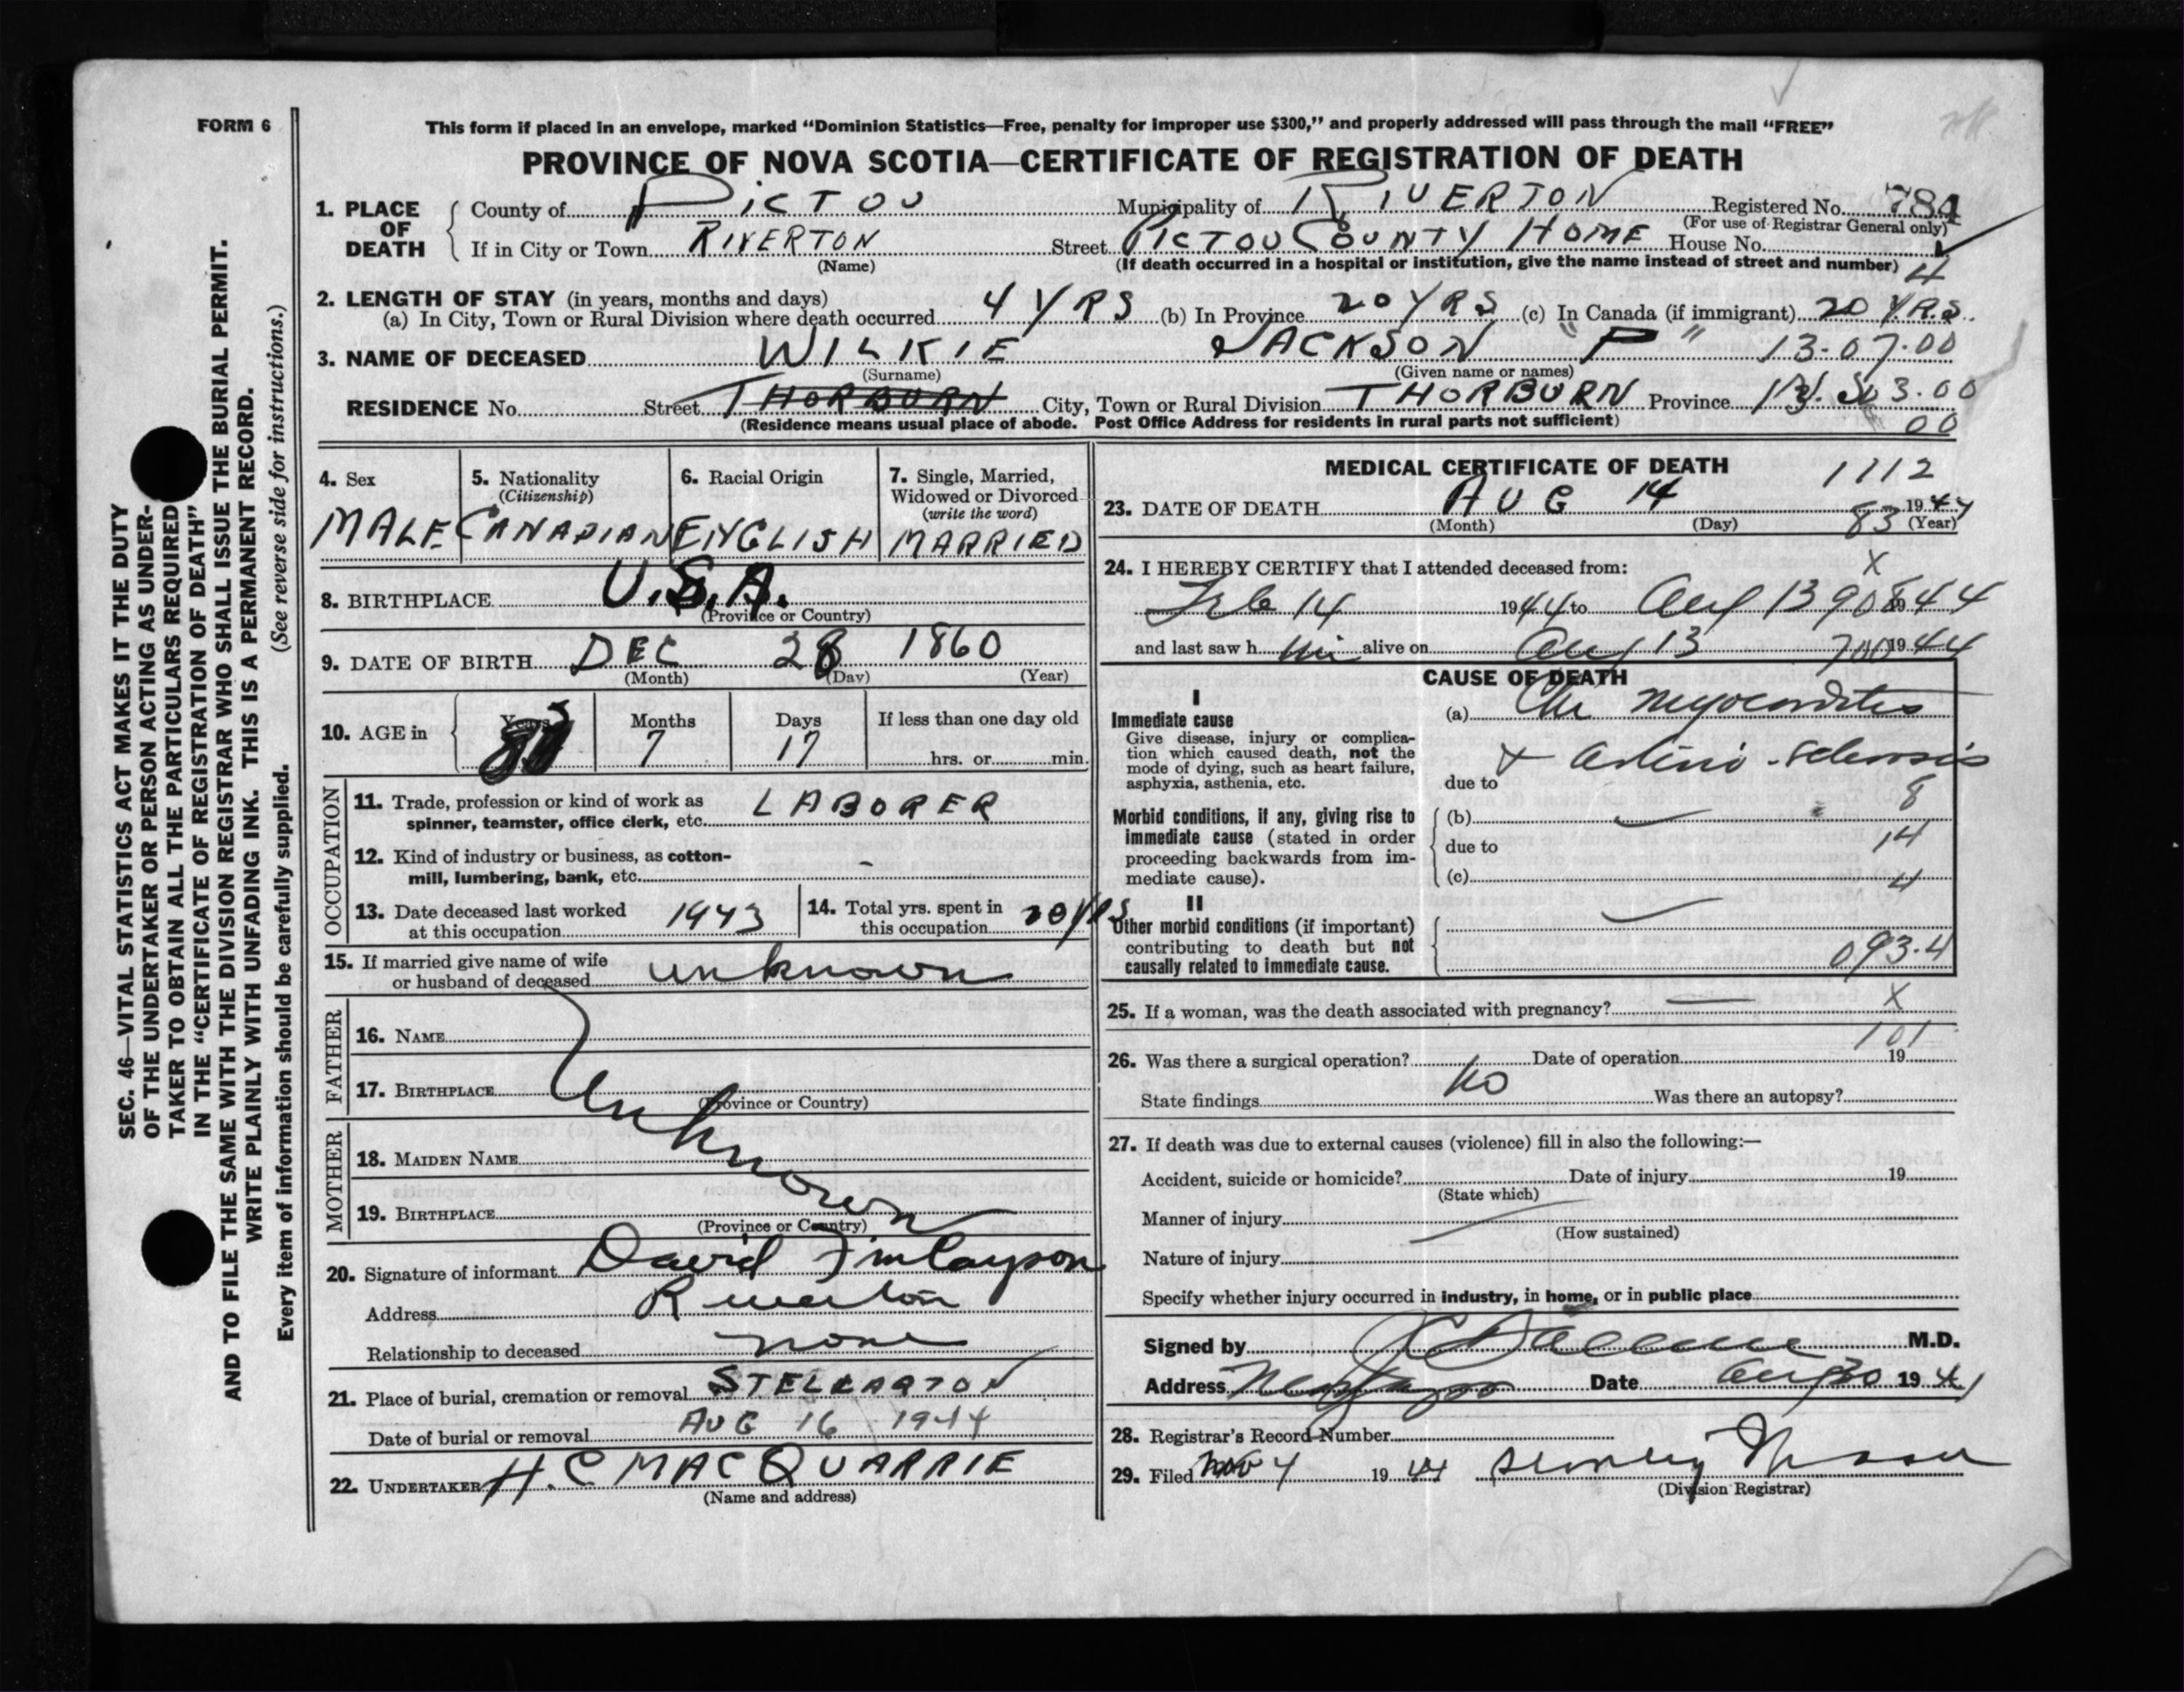 FORM 6
This form if placed in an envelope, marked “Dominion Statistics—Free, penalty for improper use $300,” and properly addressed will pass through the mail “FREE”
PROVINCE OF NOVA SCOTIA—CERTIFICATE OF REGISTRATION OF DEATH
1. PLACE OF DEATH
County of PICTOU Municipality of RIVERTON Registered No. 784
(For use of Registrar General only)
If in City or Town RIVERTON Street PICTOU COUNTY HOME House No.
(Name) (If death occurred in a hospital or institution, give the name instead of street and number) 4
2. LENGTH OF STAY (in years, months and days)
(a) In City, Town or Rural Division where death occurred 4 YRS (b) In Province 20 YRS (c) In Canada (if immigrant) 20 YRS.
3. NAME OF DECEASED WILKIE JACKSON "P" 13-07-00
(Surname) (Given name or names)
RESIDENCE No. Street THORBURN City, Town or Rural Division THORBURN Province 3.00
(Residence means usual place of abode. Post Office Address for residents in rural parts not sufficient) 00
4. Sex
MALE
5. Nationality
(Citizenship)
CANADIAN
6. Racial Origin
ENGLISH
7. Single, Married,
Widowed or Divorced
(write the word)
MARRIED
8. BIRTHPLACE U.S.A.
(Province or Country)
9. DATE OF BIRTH DEC 28 1860
(Month) (Day) (Year)
10. AGE in
Years 83
Months 7
Days 17
If less than one day old
hrs. or min.
OCCUPATION
11. Trade, profession or kind of work as
spinner, teamster, office clerk, etc. LABORER
12. Kind of industry or business, as cotton-
mill, lumbering, bank, etc. -
13. Date deceased last worked
at this occupation 1943
14. Total yrs. spent in
this occupation 20 YRS
15. If married give name of wife
or husband of deceased unknown
FATHER
16. NAME
17. BIRTHPLACE
(Province or Country)
Unknown
MOTHER
18. MAIDEN NAME
19. BIRTHPLACE
(Province or Country)
20. Signature of informant David Finlayson
Address Riverton
Relationship to deceased none
21. Place of burial, cremation or removal STELLARTON
Date of burial or removal AUG 16 1944
22. UNDERTAKER H. C MACQUARRIE
(Name and address)
MEDICAL CERTIFICATE OF DEATH
1112
23. DATE OF DEATH AUG 14 1944
(Month) (Day) 83 (Year)
24. I HEREBY CERTIFY that I attended deceased from: X
Feb 14 1944 to Aug 13 908 1944
and last saw h im alive on Aug 13 700 1944
CAUSE OF DEATH
I
Immediate cause
Give disease, injury or complica-
tion which caused death, not the
mode of dying, such as heart failure,
asphyxia, asthenia, etc.
(a) Chr myocarditis
& arterio-sclerosis
due to
8
Morbid conditions, if any, giving rise to
immediate cause (stated in order
proceeding backwards from im-
mediate cause).
(b)
due to 14
(c) 4
II
Other morbid conditions (if important)
contributing to death but not
causally related to immediate cause.
093.4
25. If a woman, was the death associated with pregnancy? — X
101
26. Was there a surgical operation? no Date of operation 19
State findings Was there an autopsy?
27. If death was due to external causes (violence) fill in also the following:—
Accident, suicide or homicide? Date of injury 19
(State which)
Manner of injury
(How sustained)
Nature of injury
Specify whether injury occurred in industry, in home, or in public place
Signed by M.D.
Address Date Aug 30 1944
28. Registrar's Record Number
29. Filed Nov 4 1944 Stanley
(Division Registrar)
SEC. 46—VITAL STATISTICS ACT MAKES IT THE DUTY
OF THE UNDERTAKER OR PERSON ACTING AS UNDER-
TAKER TO OBTAIN ALL THE PARTICULARS REQUIRED
IN THE “CERTIFICATE OF REGISTRATION OF DEATH”
AND TO FILE THE SAME WITH THE DIVISION REGISTRAR WHO SHALL ISSUE THE BURIAL PERMIT.
WRITE PLAINLY WITH UNFADING INK. THIS IS A PERMANENT RECORD.
Every item of information should be carefully supplied. (See reverse side for instructions.)